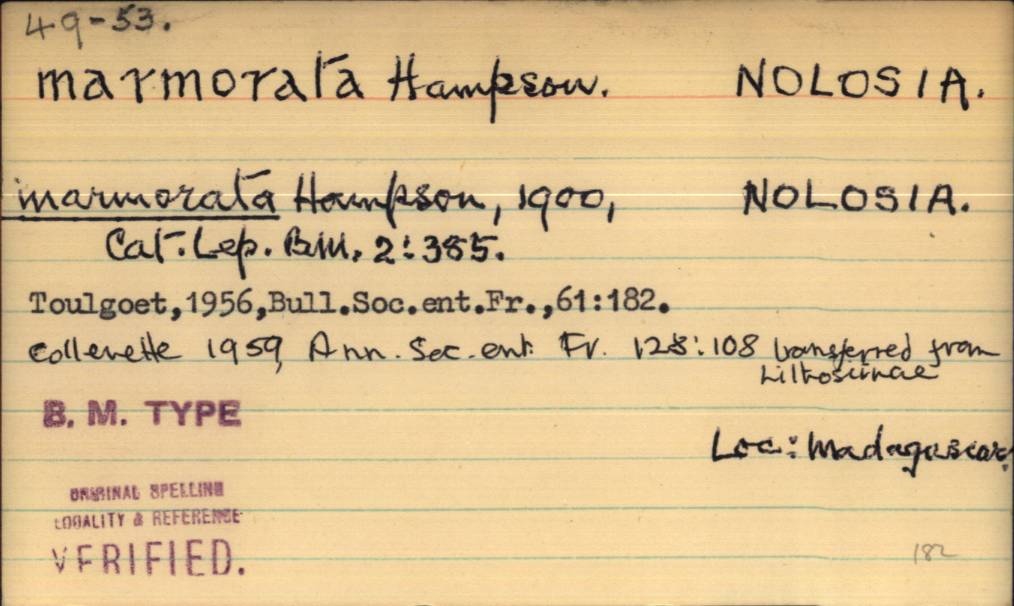 49-53.
marmorata Hampson. NOLOSIA.
marmorata Hampson, 1900, NOLOSIA.
Cat. Lep. B.M. 2:385.
Toulgoet,1956,Bull.Soc.ent.Fr.,61:182.
Collenette 1959, Ann. Soc. ent. Fr. 128:108 transferred from
Lithosiinae
B. M. TYPE
Loc: Madagascar.
ORIGINAL SPELLING
LOCALITY & REFERENCE
VERIFIED.
182